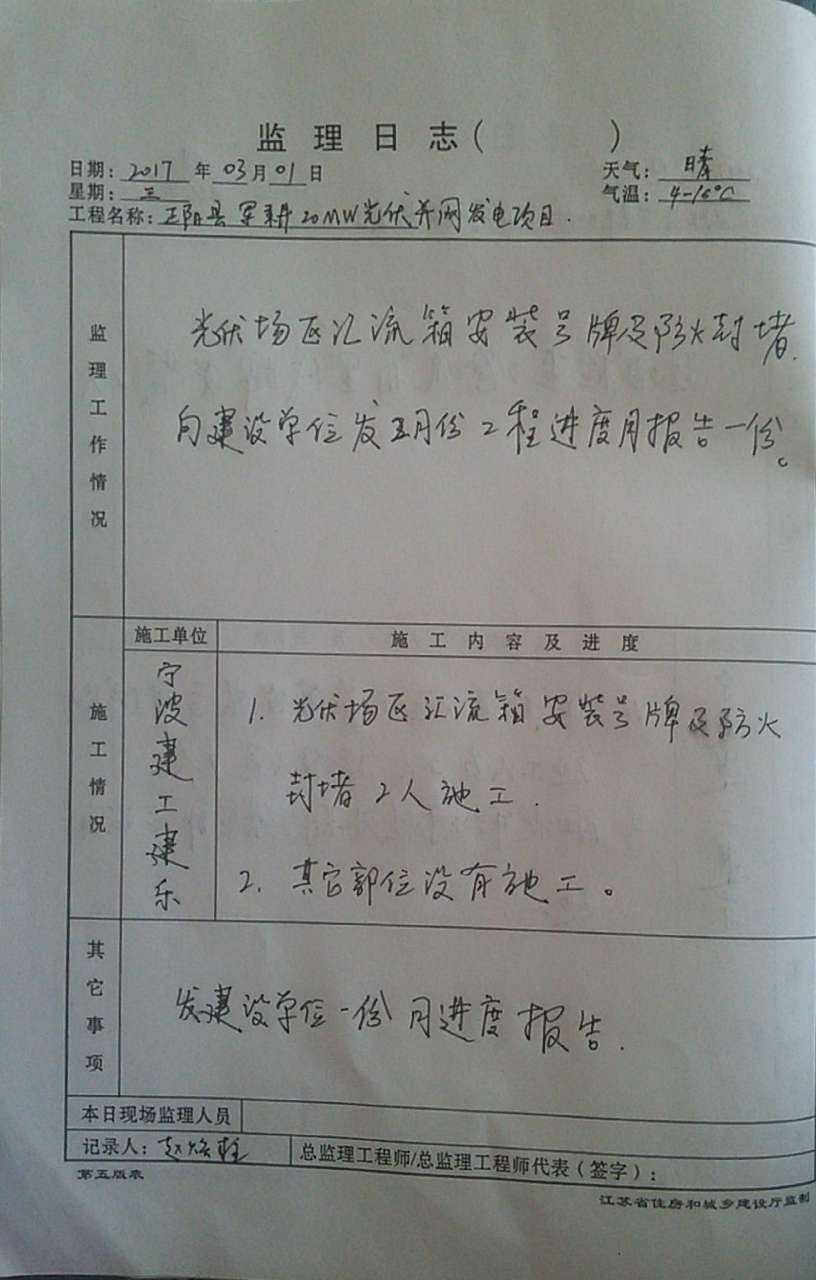 监理日志( )
日期: 2017 年 03 月 01 日 天气: 晴
星期: 三 气温: 4-16℃
工程名称: 正阳县军耕20MW光伏并网发电项目.
监理工作情况
光伏场区汇流箱安装号牌及防火封堵.
向建设单位发 月份工程进度月报告一份。
施工单位 施工内容及进度
施工情况
宁波建工建乐
1. 光伏场区汇流箱安装号牌及防火
封堵2人施工.
2. 其它部位没有施工。
其它事项
发建设单位一份月进度报告.
本日现场监理人员
记录人: 赵 总监理工程师/总监理工程师代表(签字):
第五版表 江苏省住房和城乡建设厅监制